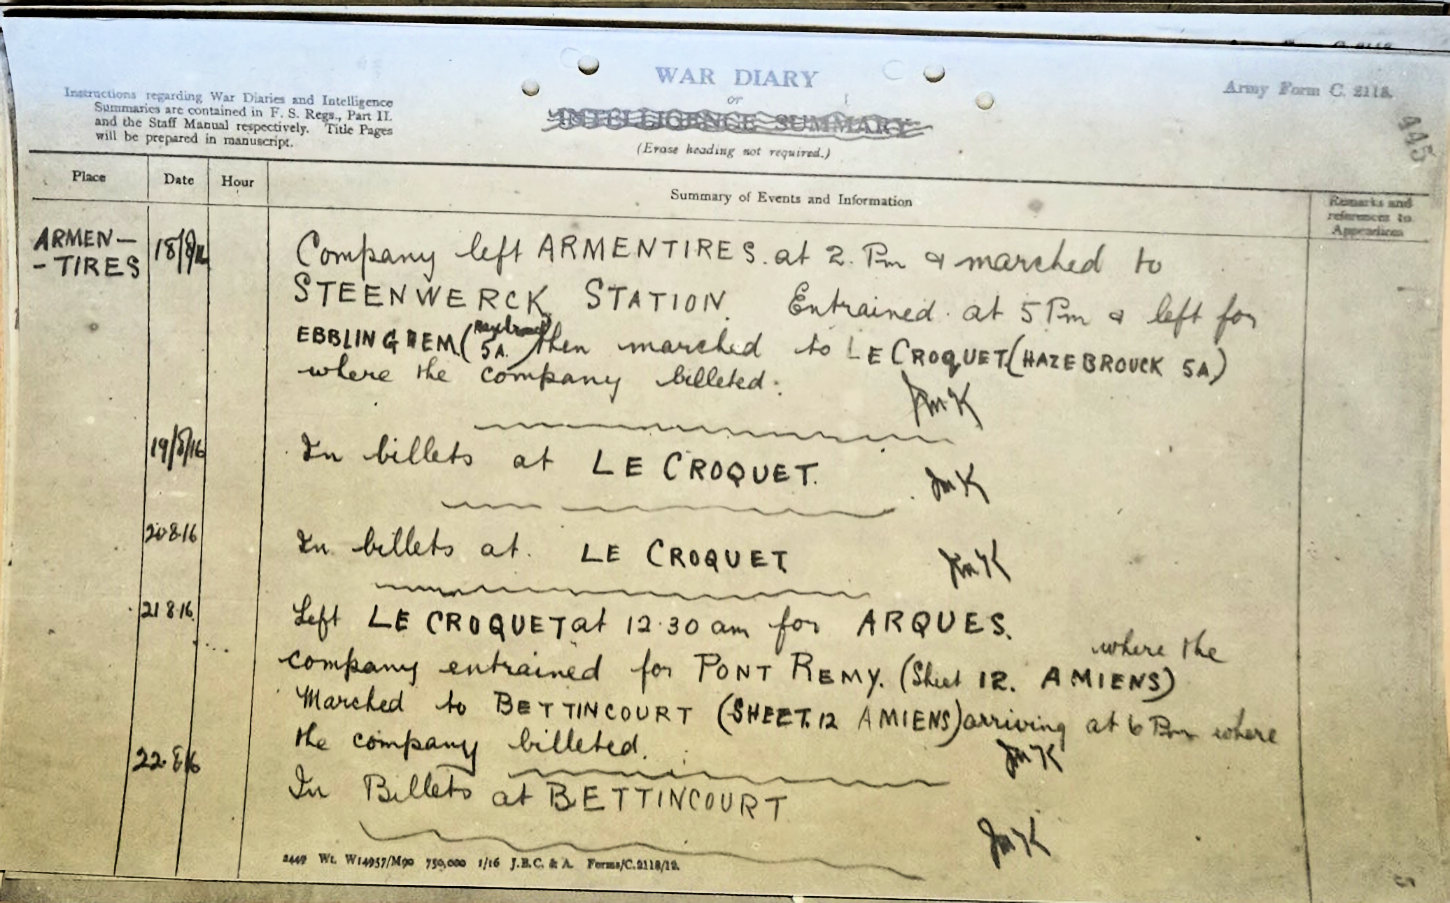 WAR DIARY
or
INTELLIGENCE SUMMARY
(Erase heading not required.)
Instructions regarding War Diaries and Intelligence
Summaries are contained in F. S. Regs., Part II.
and the Staff Manual respectively. Title Pages
will be prepared in manuscript.
Army Form C. 2118.
445
Place Date Hour Summary of Events and Information
Remarks and
references to
Appendices
ARMEN-
-TIRES
18/8/16
Company left ARMENTIRES. at 2. Pm & marched to
STEENWERCK STATION. Entrained at 5 Pm & left for
EBBLINGHEM (Hazebrouck 5A.) then marched to LE CROQUET (HAZEBROUCK 5A)
where the company billeted.
JMK
19/8/16 In billets at LE CROQUET. JMK
20 8 16 In billets at LE CROQUET JMK
21 8 16 Left LE CROQUET at 12.30 am for ARQUES. where the
company entrained for PONT REMY. (Sheet 12. AMIENS)
Marched to BETTINCOURT (SHEET. 12 AMIENS) arriving at 6 Pm where
the company billeted. JMK
22.8.16 In Billets at BETTINCOURT JMK
2449 Wt. W14957/M90 750,000 1/16 J.B.C. & A. Forms/C.2118/12.